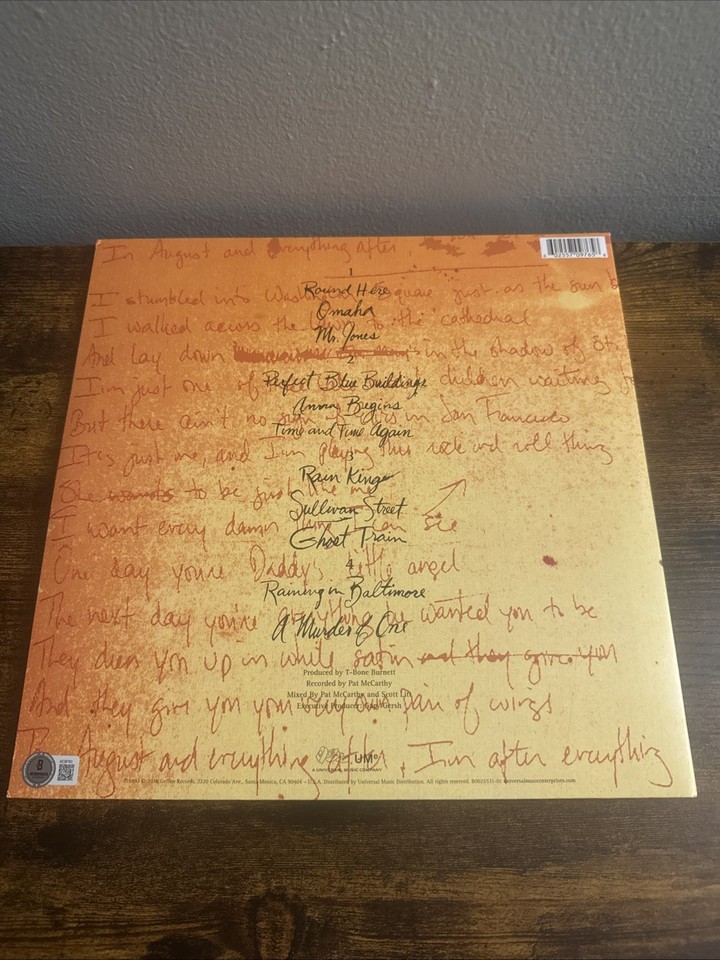 In August and everything after,
1
I stumbled into Washington Square just as the sun
Round Here
Omaha
I walked across the lawn to the cathedral
Mr. Jones
And lay down in the shadow of St.
2
Perfect Blue Buildings
I'm just one of children waiting
Anna Begins
But there ain't no in San Francisco
Time and Time Again
It's just me, and I'm playing this rock and roll thing
3
Rain King
She wants to be just like me
Sullivan Street
I want every damn thing I can see
Ghost Train
One day you're Daddy's little angel
4
Raining in Baltimore
The next day you're everything he wanted you to be
A Murder of One
They dress you up in white satin and they give you
Produced by T-Bone Burnett
Recorded by Pat McCarthy
Mixed By Pat McCarthy and Scott Litt
And they give you your very own pair of wings
Executive Producer: Gary Gersh
In August and everything after, I'm after everything
UMe
A UNIVERSAL MUSIC COMPANY
Geffen Records, 2220 Colorado Ave., Santa Monica, CA 90404 - U.S.A. Distributed by Universal Music Distribution. All rights reserved. universalmusicenterprises.com